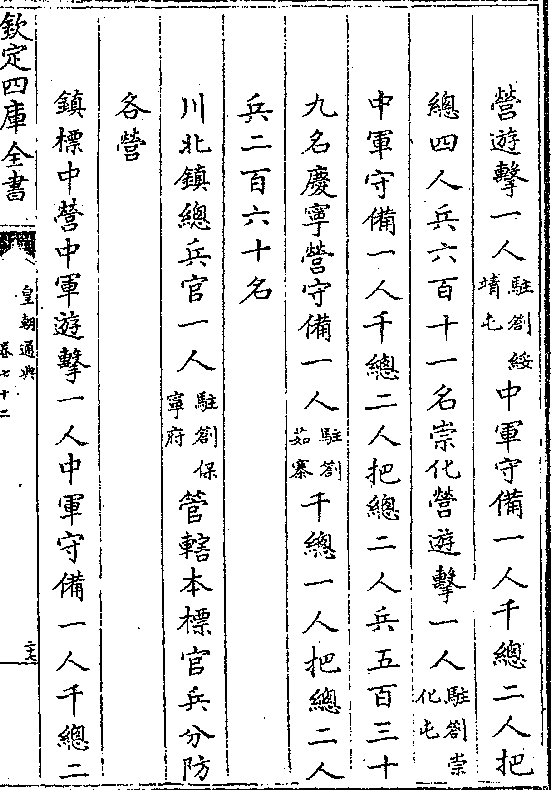 營遊擊一人駐劄綏靖屯中軍守備一人千總二人把
總四人兵六百十一名崇化營遊擊一人駐劄崇化屯
中軍守備一人千總二人把總二人兵五百三十
九名慶寧營守備一人駐劄茹寨千總一人把總二人
兵二百六十名
川北鎮總兵官一人駐劄保寧府管轄本標官兵分防
各營
鎮標中營中軍遊擊一人中軍守備一人千總二
欽定四庫全書
皇朝通典
卷七十二